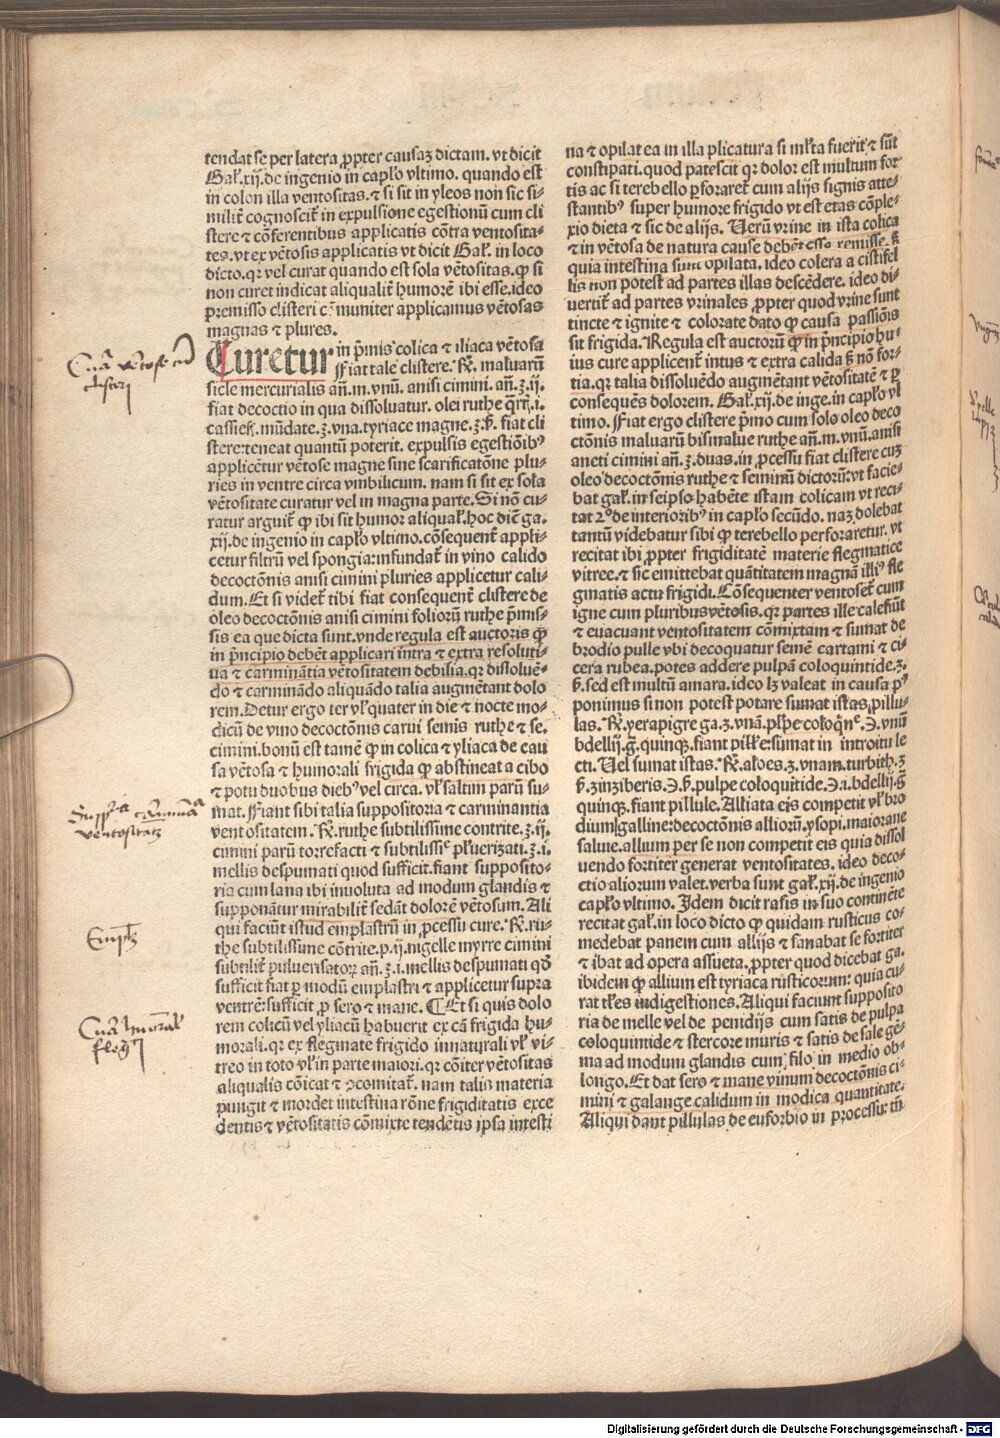 tendat se per latera ꝓpter causaꝫ dictam. vt dicit
Gał.xij.de ingenio in capło vltimo. quando est
in colon illa ventositas. ⁊ si sit in yleos non sic si-
milit̄ cognoscit̄ in expulsione egestionū cum cli
stere ⁊ cōferentibus applicatis cōtra ventosita-
tes.vt ex vētosis applicatis vt dicit Gał. in loco
dicto.qꝛ vel curat quando est sola vētositas.ꝙ si
non curet indicat aliqualit̄ humorē ibi esse.ideo
premisso clisteri cōmuniter applicamus vētosas
magnas ⁊ plures.
Curetur in p̄mis colica ⁊ iliaca vētosa
Fiat tale clistere. ℞. maluarū
sicle mercurialis añ.m.vnū. anisi cimini. añ.ʒ.ij.
fiat decoctio in qua dissoluatur. olei ruthe q̄rt̄.i.
cassief. mūdate.ʒ.vna.tyriace magne.ʒ.ẞ. fiat cli
stere:teneat quantū poterit. expulsis egestiōibꝰ
applicētur vētose magne sine scarificatōne plu-
ries in ventre circa vmbilicum. nam si sit ex sola
vētositate curatur vel in magna parte. Si nō cu-
ratur arguit̄ ꝙ ibi sit humor aliquał.hoc dic̄ ga.
xij.de ingenio in capło vltimo.cōsequent̄ appli-
cetur filtrū vel spongia:infundat̄ in vino calido
decoctōnis anisi cimini pluries applicetur cali-
dum. Et si videt̄ tibi fiat consequent̄ clistere de
oleo decoctōnis anisi cimini foliorū ruthe p̄mis-
sis ea que dicta sunt.vnde regula est auctoris ꝙ
in p̄ncipio debēt applicari intra ⁊ extra resoluti-
ua ⁊ carminātia vētositatem debilia.qꝛ dissoluē-
do ⁊ carminādo aliquādo talia augmētant dolo
rem.Detur ergo ter vł quater in die ⁊ nocte mo-
dicū de vino decoctōnis carui semis ruthe ⁊ se.
cimini.bonū est tamē ꝙ in colica ⁊ yliaca de cau
sa vētosa ⁊ humorali frigida ꝙ abstineat a cibo
⁊ potu duobus diebꝰ vel circa. vł saltim parū su-
mat. Fiant sibi talia suppositoria ⁊ carminantia
ventositatem. ℞. ruthe subtilissime contrite.ʒ.ij.
cimini parū torrefacti ⁊ subtilissie pluerizati.ʒ.i.
mellis despumati quod sufficit.fiant supposito-
ria cum lana ibi inuoluta ad modum glandis ⁊
supponātur mirabilit̄ sedāt dolorē vētosum. Ali
qui faciūt istud emplastrū in ꝓcessu cure. ℞. ru-
the subtilissime cōtrite.p.ij.nigelle myrre cimini
subtilit̄ puluerisatoꝝ añ.ʒ.i.mellis despumati qd̄
sufficit fiat ꝑ modū emplastri ⁊ applicetur supra
ventrē:sufficit ꝓ sero ⁊ mane. ¶ Et si quis dolo
rem colicū vel yliacū habuerit ex cā frigida hu-
morali.qꝛ ex flegmate frigido innaturali vł vi-
treo in toto vł in parte maiori.qꝛ cōiter vētositas
aliqualis cōicat ⁊ ꝯcomitat̄. nam talis materia
pungit ⁊ mordet intestina rōne frigiditatis exce
dentis ⁊ vētositatis cōmixte tendētis ipsa intesti
na ⁊ opilat ea in illa plicatura si młta fuerit ⁊ sūt
constipati.quod patescit qꝛ dolor est multum for
tis ac si terebello ꝑforaret̄ cum alijs signis atte-
stantibꝰ super humore frigido vt est etas cōple-
xio dieta ⁊ sic de alijs. Verū vrine in ista colica
⁊ in vētosa de natura cause debēt esse remisse.
quia intestina sunt opilata. ideo colera a cistifel
lis non potest ad partes illas descēdere. ideo di-
uertit̄ ad partes vrinales ꝓpter quod vrine sunt
tincte ⁊ ignite ⁊ colorate dato ꝙ causa passiōis
sit frigida. Regula est auctorū ꝙ in p̄ncipio hu-
ius cure applicent̄ intus ⁊ extra calida ẞ nō for-
tia.qꝛ talia dissoluēdo augmētant vētositatē ⁊ ꝑ
consequēs dolorem. Gał.xij.de inge.in capło vl
timo. Fiat ergo clistere p̄mo cum solo oleo deco
ctōnis maluarū bismalue ruthe añ.m.vnū.anisi
aneti cimini añ.ʒ.duas.in ꝓcessu fiat clistere cuꝫ
oleo decoctōnis ruthe ⁊ seminū dictorū:vt facie-
bat gał.in seipso habēte istam colicam vt reci-
tat 2º de interioribꝰ in capło secūdo. naꝫ dolebat
tantū videbatur sibi ꝙ terebello perforaretur. vt
recitat ibi ꝓpter frigiditatē materie flegmatice
vitree.⁊ sic emittebat quātitatem magnā illiꝰ fle
gmatis actu frigidi. Cōsequenter ventoset̄ cum
igne cum pluribus vētosis.qꝛ partes ille calefiūt
⁊ euacuant ventositatem cōmixtam ⁊ sumat de
brodio pulle vbi decoquatur semē cartami ⁊ ci-
cera rubea.potes addere pulpā coloquintide.ʒ.
ẞ.sed est multū amara.ideo lꝫ valeat in causa pꝰ
ponimus si non potest potare sumat istas pillu-
las. ℞.yerapigre ga.ʒ.vnā.płpe coloq̄ne.℈.vnū
bdellij.g̃.quinqꝫ.fiant piłłe:sumat in introitu le
cti. Vel sumat istas. ℞.aloes.ʒ.vnam.turbith.ʒ
ẞ.zinziberis.℈.ẞ.pulpe coloquitide.℈.i.bdellij.g̃
quinqꝫ.fiant pillule. Alliata eis competit vł bro
dium galline:decoctōnis alliorū.ysopi.maiorane
saluie.allium per se non competit eis quia dissol
uendo fortiter generat ventositates. ideo deco-
ctio aliorum valet.verba sunt gał.xij.de ingenio
capło vltimo. Idem dicit rasis in suo continēte
recitat gał.in loco dicto ꝙ quidam rusticus co-
medebat panem cum allijs ⁊ sanabat se fortiter
⁊ ibat ad opera assueta.ꝓpter quod dicebat ga.
ibidem ꝙ allium est tyriaca rusticorum: quia cu-
rat tłes indigestiones. Aliqui faciunt supposito
ria de melle vel de penidijs cum satis de pulpa
coloquintide ⁊ stercore muris ⁊ satis de sale gē-
ma ad modum glandis cum filo in medio ob-
longo. Et dat sero ⁊ mane vinum decoctōnis ci-
mini ⁊ galange.calidum in modica quantitate.
Aliqui dant pillulas de euforbio in processu: tn̄
Digitalisierung gefördert durch die Deutsche Forschungsgemeinschaft - DFG